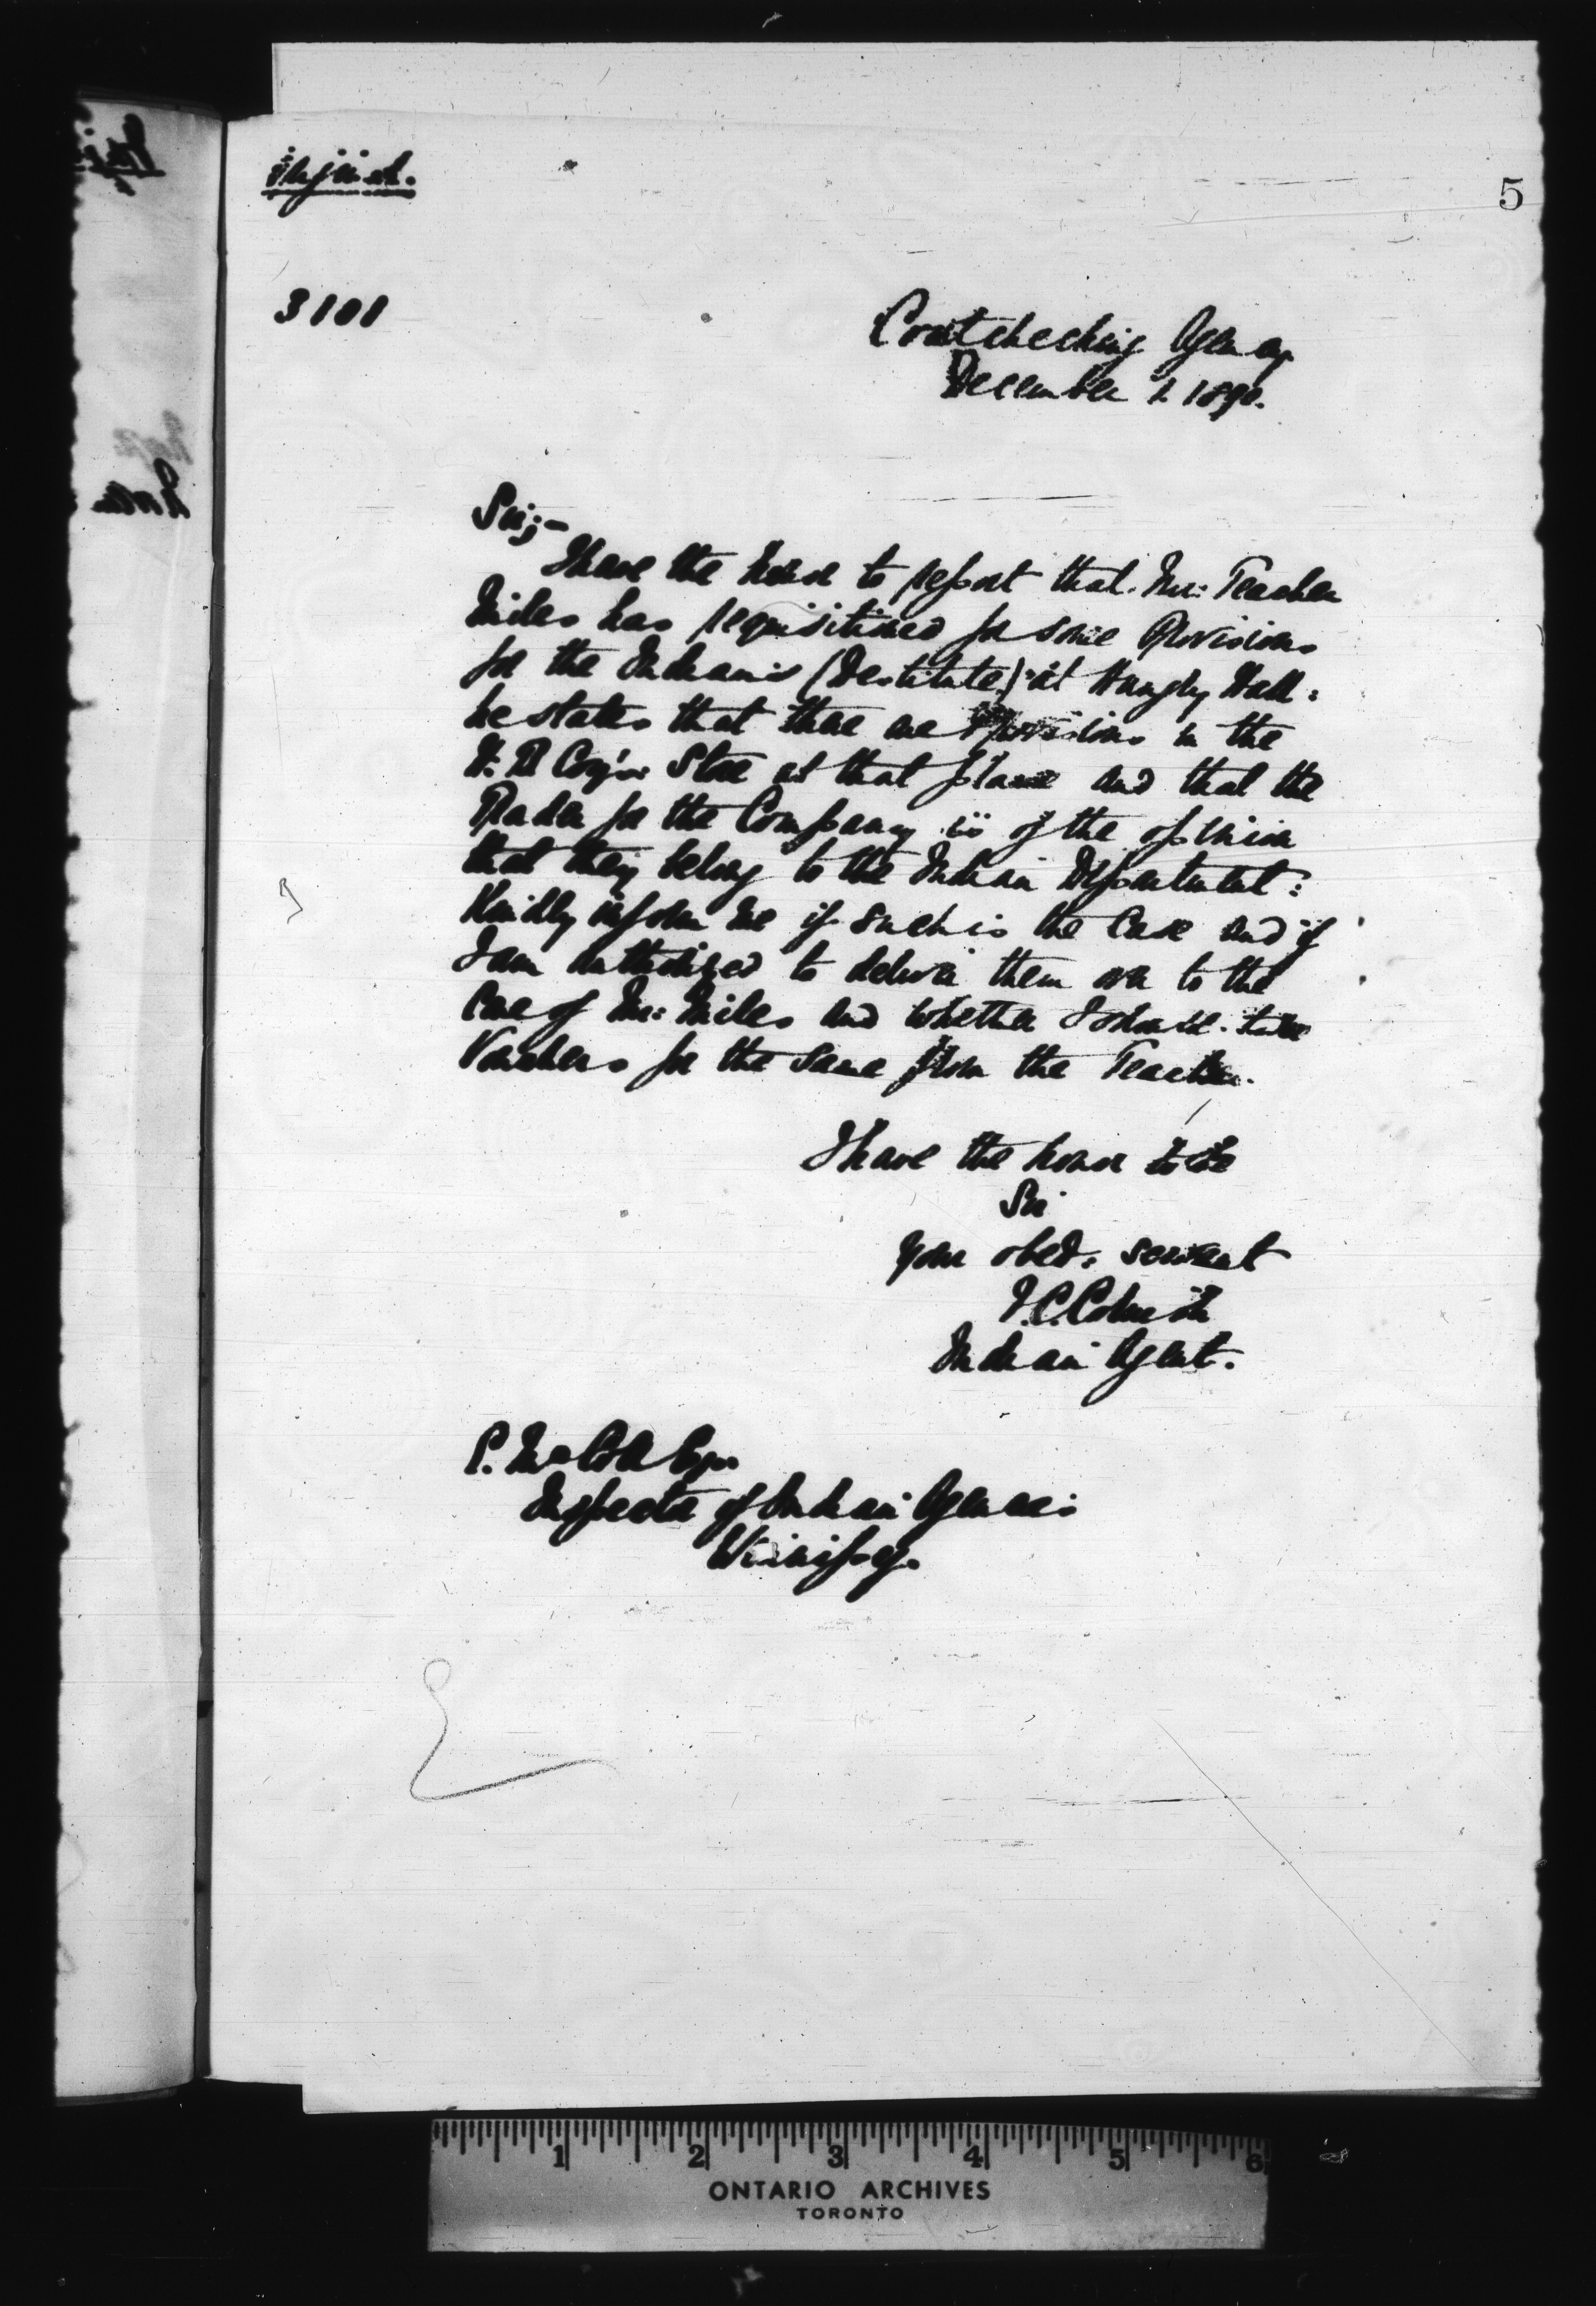 5
3101
Coutcheching Agency
December 1. 1890.
Sir;-
I have the honor to report that Mr: Teacher
Miles has requisitioned for some Provisions
for the Indians (Destitute) at Hungry Hall:
he states that there are Provisions in the
H. B Coy's: Store at that place and that the
Trader for the Company is of the opinion
that they belong to the Indian Department:
Kindly inform me if such is the Case and if
I am authorized to deliver them over to the
Care of Mr: Miles and whether I should take
Vouchers for the same from the Teacher.
I have the honor to be
Sir
your obed: servant
Indian Agent.
E. McColl Esqr.
Inspector of Indian Agencies
Winnipeg.
1 2 3 4 5 6
ONTARIO ARCHIVES
TORONTO